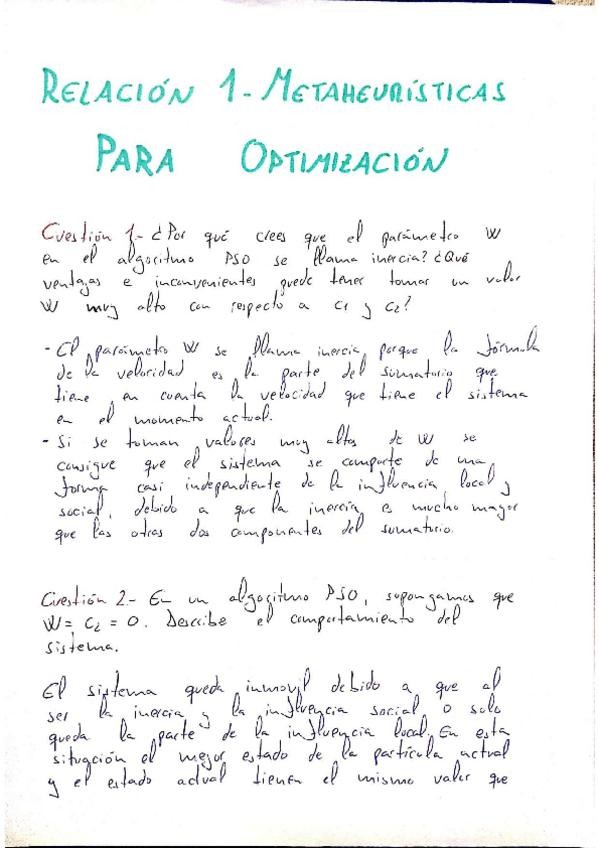 RELACIÓN 1.- METAHEURÍSTICAS
PARA OPTIMIZACIÓN
Cuestión 1.- ¿Por qué crees que el parámetro W
en el algoritmo PSO se llama inercia? ¿Qué
ventajas e inconvenientes puede tener tomar un valor
W muy alto con respecto a c1 y c2?
- El parámetro W se llama inercia porque la fórmula
de la velocidad es la parte del sumatorio que
tiene en cuenta la velocidad que tiene el sistema
en el momento actual.
- Si se toman valores muy altos de W se
consigue que el sistema se comporte de una
forma casi independiente de la influencia local y
social, debido a que la inercia es mucho mayor
que las otras dos componentes del sumatorio.
Cuestión 2.- En un algoritmo PSO, supongamos que
W = C2 = 0. Describe el comportamiento del
sistema.
El sistema queda inmovil debido a que al
ser la inercia y la influencia social 0 solo
queda la parte de la influencia local. En esta
situación el mejor estado de la partícula actual
y el estado actual tienen el mismo valor que